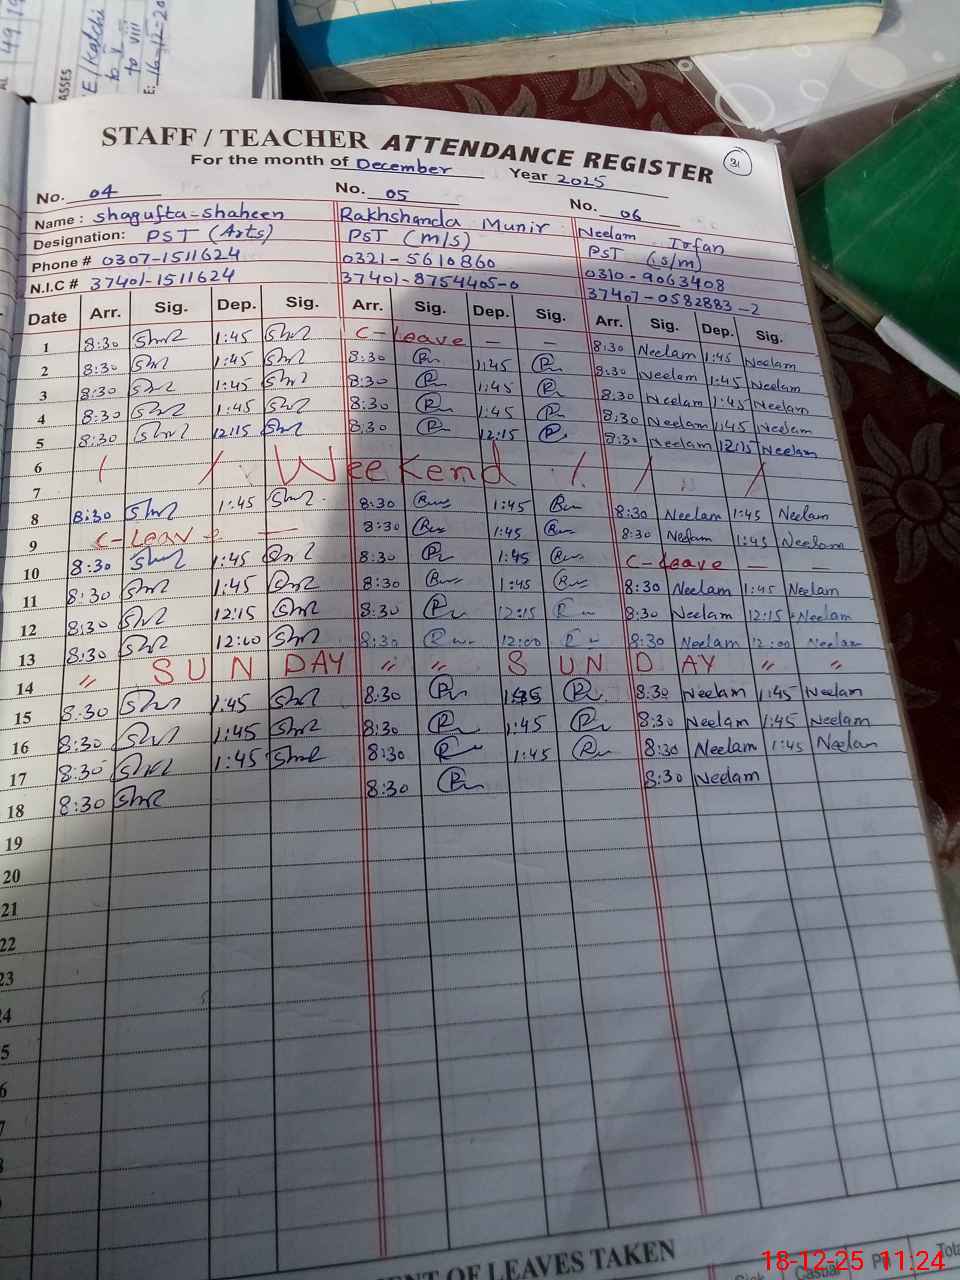 STAFF / TEACHER ATTENDANCE REGISTER 31
For the month of December Year 2025
No. 04 No. 05 No. 06
Name : Shagufta-Shaheen Rakhshanda Munir Neelam Irfan
Designation: PST (Arts) PST (m/s) PST (s/m)
Phone # 0307-1511624 0321-5610860 0310-9063408
N.I.C # 37401-1511624 37401-8754405-0 37407-0582883-2
Date Arr. Sig. Dep. Sig. Arr. Sig. Dep. Sig. Arr. Sig. Dep. Sig.
1 8:30 1:45 C-Leave — — 8:30 Neelam 1:45 Neelam
2 8:30 1:45 8:30 1:45 8:30 Neelam 1:45 Neelam
3 8:30 1:45 8:30 1:45 8:30 Neelam 1:45 Neelam
4 8:30 1:45 8:30 1:45 8:30 Neelam 1:45 Neelam
5 8:30 12:15 8:30 12:15 8:30 Neelam 12:15 Neelam
6 / / Weekend / / /
7
8 8:30 1:45 8:30 1:45 8:30 Neelam 1:45 Neelam
9 C-Leave — 8:30 1:45 8:30 Neelam 1:45 Neelam
10 8:30 1:45 8:30 1:45 C-Leave — —
11 8:30 1:45 8:30 1:45 8:30 Neelam 1:45 Neelam
12 8:30 12:15 8:30 12:15 8:30 Neelam 12:15 Neelam
13 8:30 12:00 8:30 12:00 8:30 Neelam 12:00 Neelam
14 " SUNDAY " " SUNDAY " "
15 8:30 1:45 8:30 1:45 8:30 Neelam 1:45 Neelam
16 8:30 1:45 8:30 1:45 8:30 Neelam 1:45 Neelam
17 8:30 1:45 8:30 1:45 8:30 Neelam 1:45 Neelam
18 8:30 8:30 8:30 Neelam
19
20
21
22
23
24
MENT OF LEAVES TAKEN
18-12-25 11:24